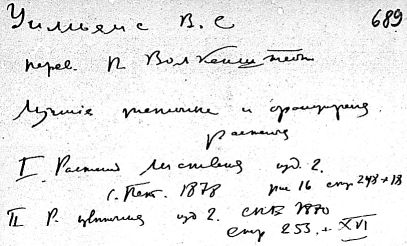 Уильямс В. С 689
перев. П Волкенштейн
Лучшія тепличные и оранжерейн.
растения
I Растения лиственн изд. 2.
С. Пет. 1878 рис 16 стр 248+18
II Р. цветочныя изд 2. СПБ 1880
стр 253.+XVI